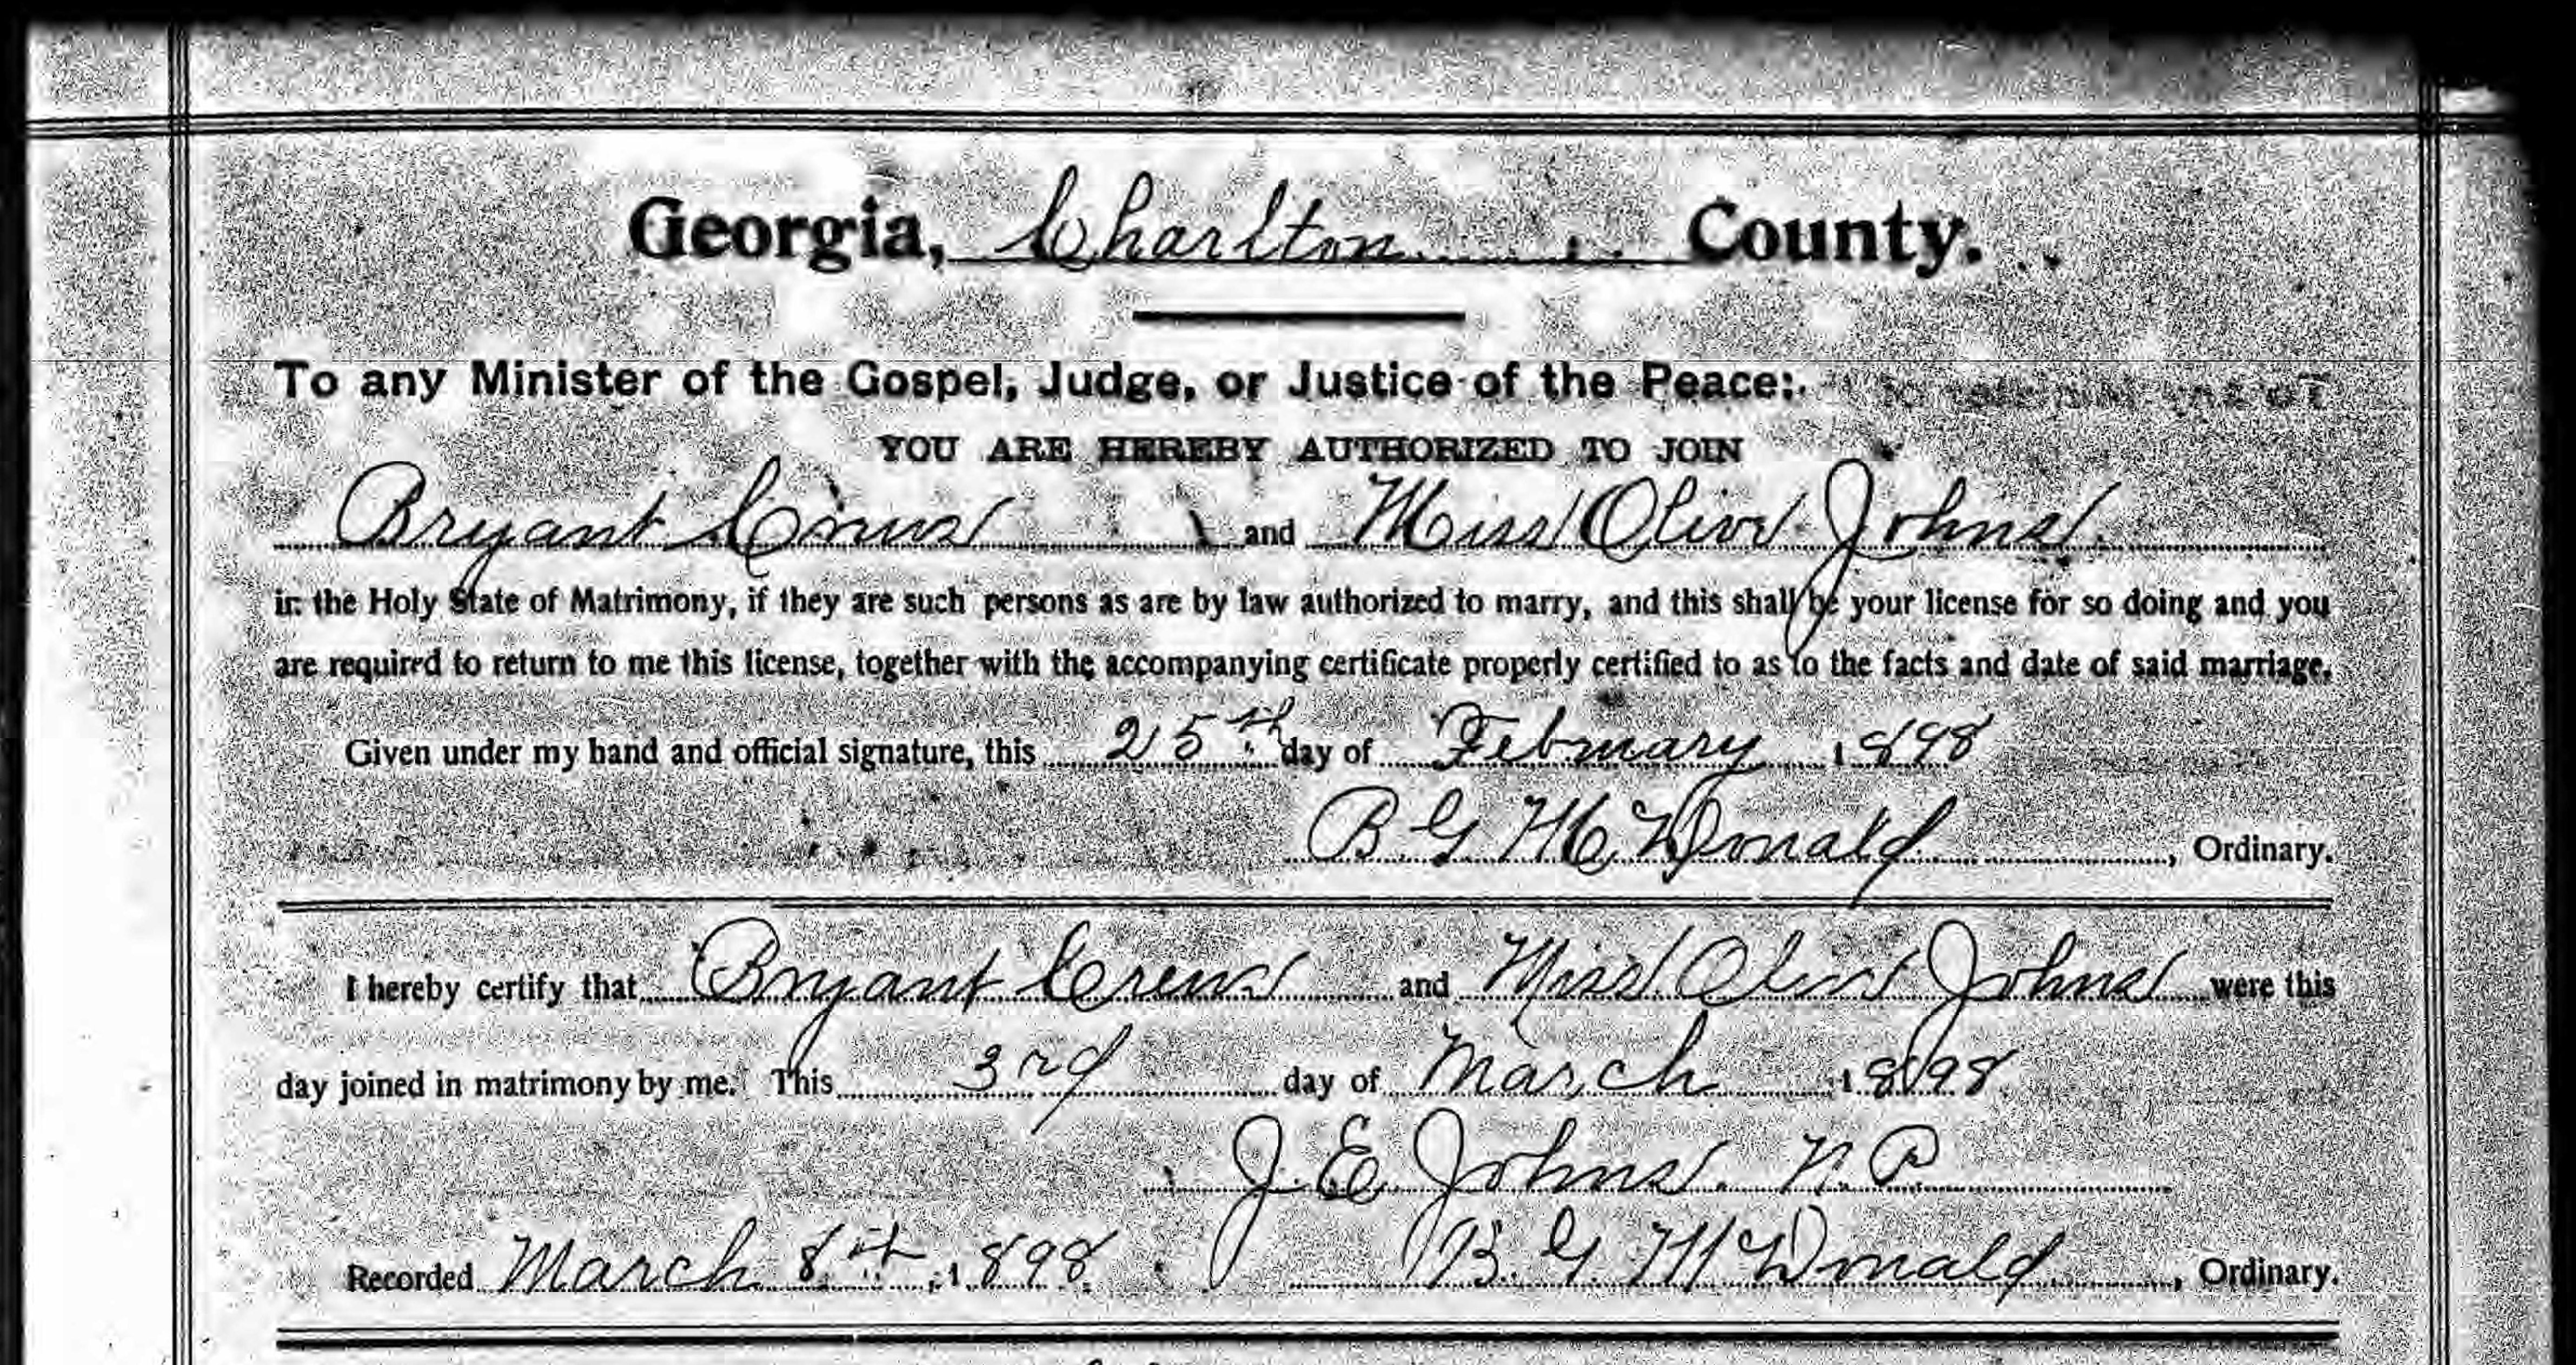 Georgia, Charlton County.
To any Minister of the Gospel, Judge, or Justice of the Peace:
YOU ARE HEREBY AUTHORIZED TO JOIN
Bryant Crews and Miss Olive Johns
in the Holy State of Matrimony, if they are such persons as are by law authorized to marry, and this shall be your license for so doing and you
are required to return to me this license, together with the accompanying certificate properly certified to as to the facts and date of said marriage.
Given under my hand and official signature, this 25th day of February 1898
B G McDonald, Ordinary.
I hereby certify that Bryant Crews and Miss Olive Johns were this
day joined in matrimony by me. This 3rd day of March 1898
J. E. Johns. N. P.
Recorded March 8th, 1898 B. G. McDonald, Ordinary.